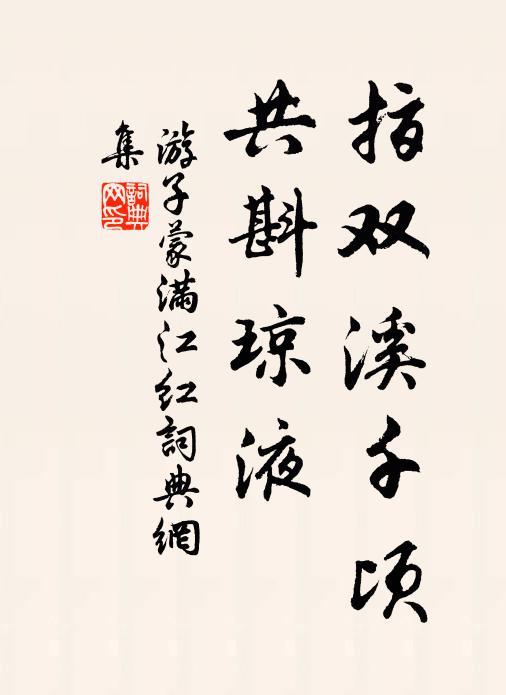 指双溪千顷
共斟琼液
游子蒙满江红詞典網
集
詞典网印